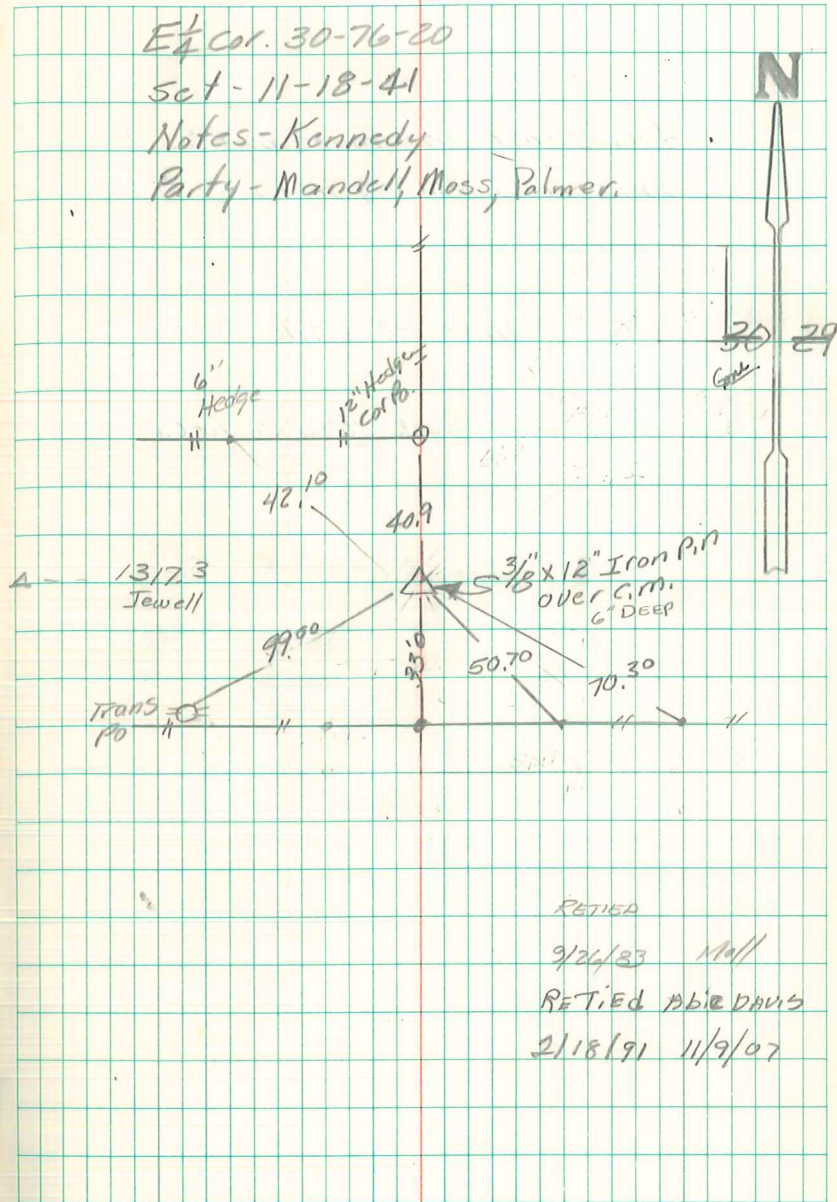 E 1/4 Cor. 30-76-20
Set - 11-18-41
Notes - Kennedy
Party - Mandell, Moss, Palmer.
N
30 29
6" Hedge
12" Hedge
Cor Po.
42.10
40.9
1317.3
Jewell
3/8" x 12" Iron Pin
over C.M.
6" DEEP
99.00
33.0
50.70
70.30
Trans
Po
RETIED
9/26/83 Moll
RETIED Abie DAVIS
2/18/91 11/9/07